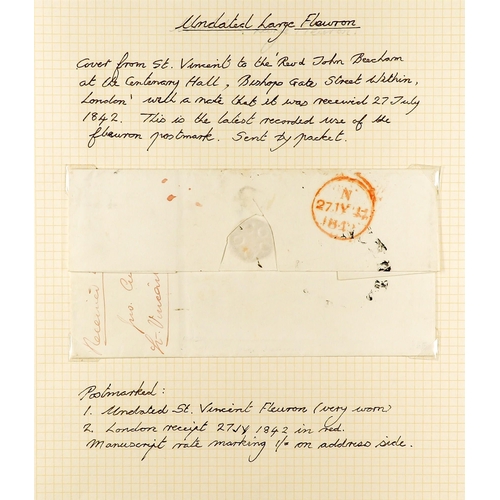 Undated Large Fleuron
Cover from St. Vincent to the 'Revd John Beecham
at the Centenary Hall, Bishops Gate Street Within,
London' with a note that it was received 27 July
1842. This is the latest recorded use of the
fleuron postmark. Sent by packet.
N
27 JY
184
Received
St. Vincent
Postmarked:
1. Undated St. Vincent Fleuron (very worn)
2. London receipt 27 JY 1842 in red.
Manuscript rate marking 1/- on address side.